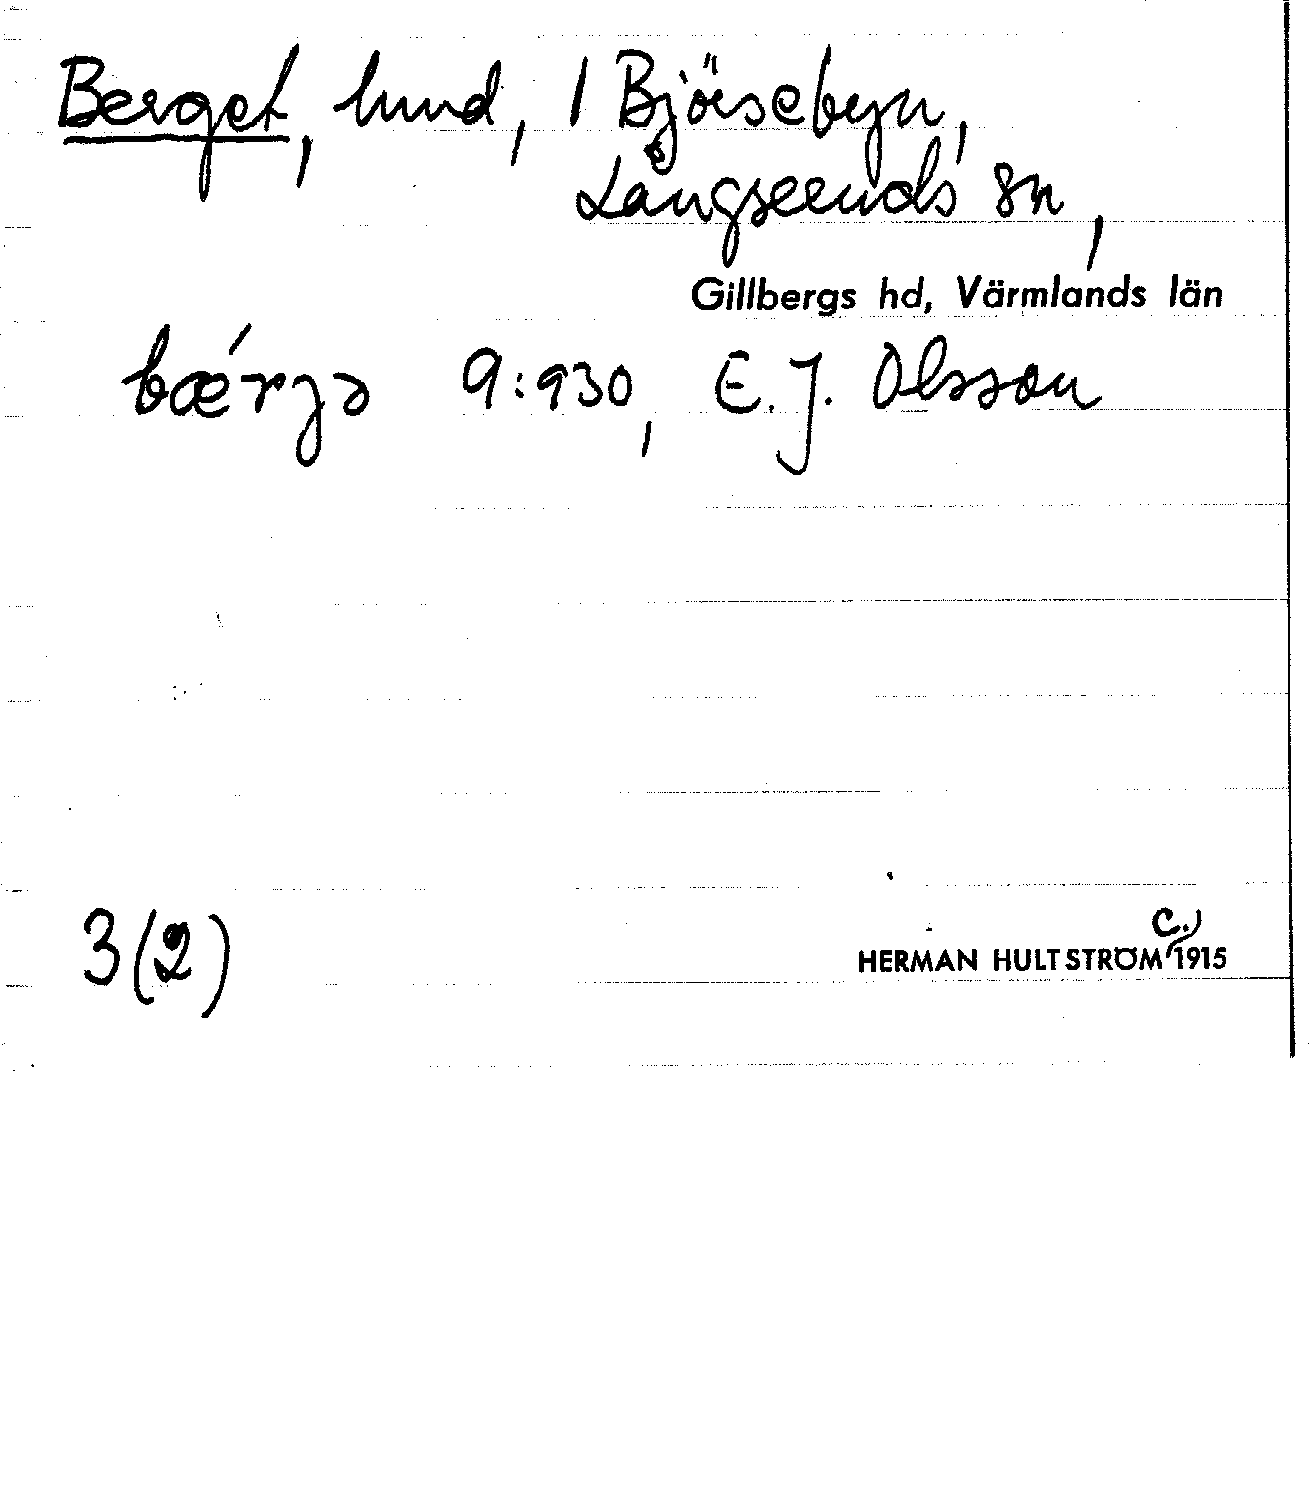 Berget, lund, 1 Björsebyn,
Långseruds sn,
Gillbergs hd, Värmlands län
bǽrjə 9:930, E. J. Olsson
3(2)
C.)
HERMAN HULTSTRÖM 1915